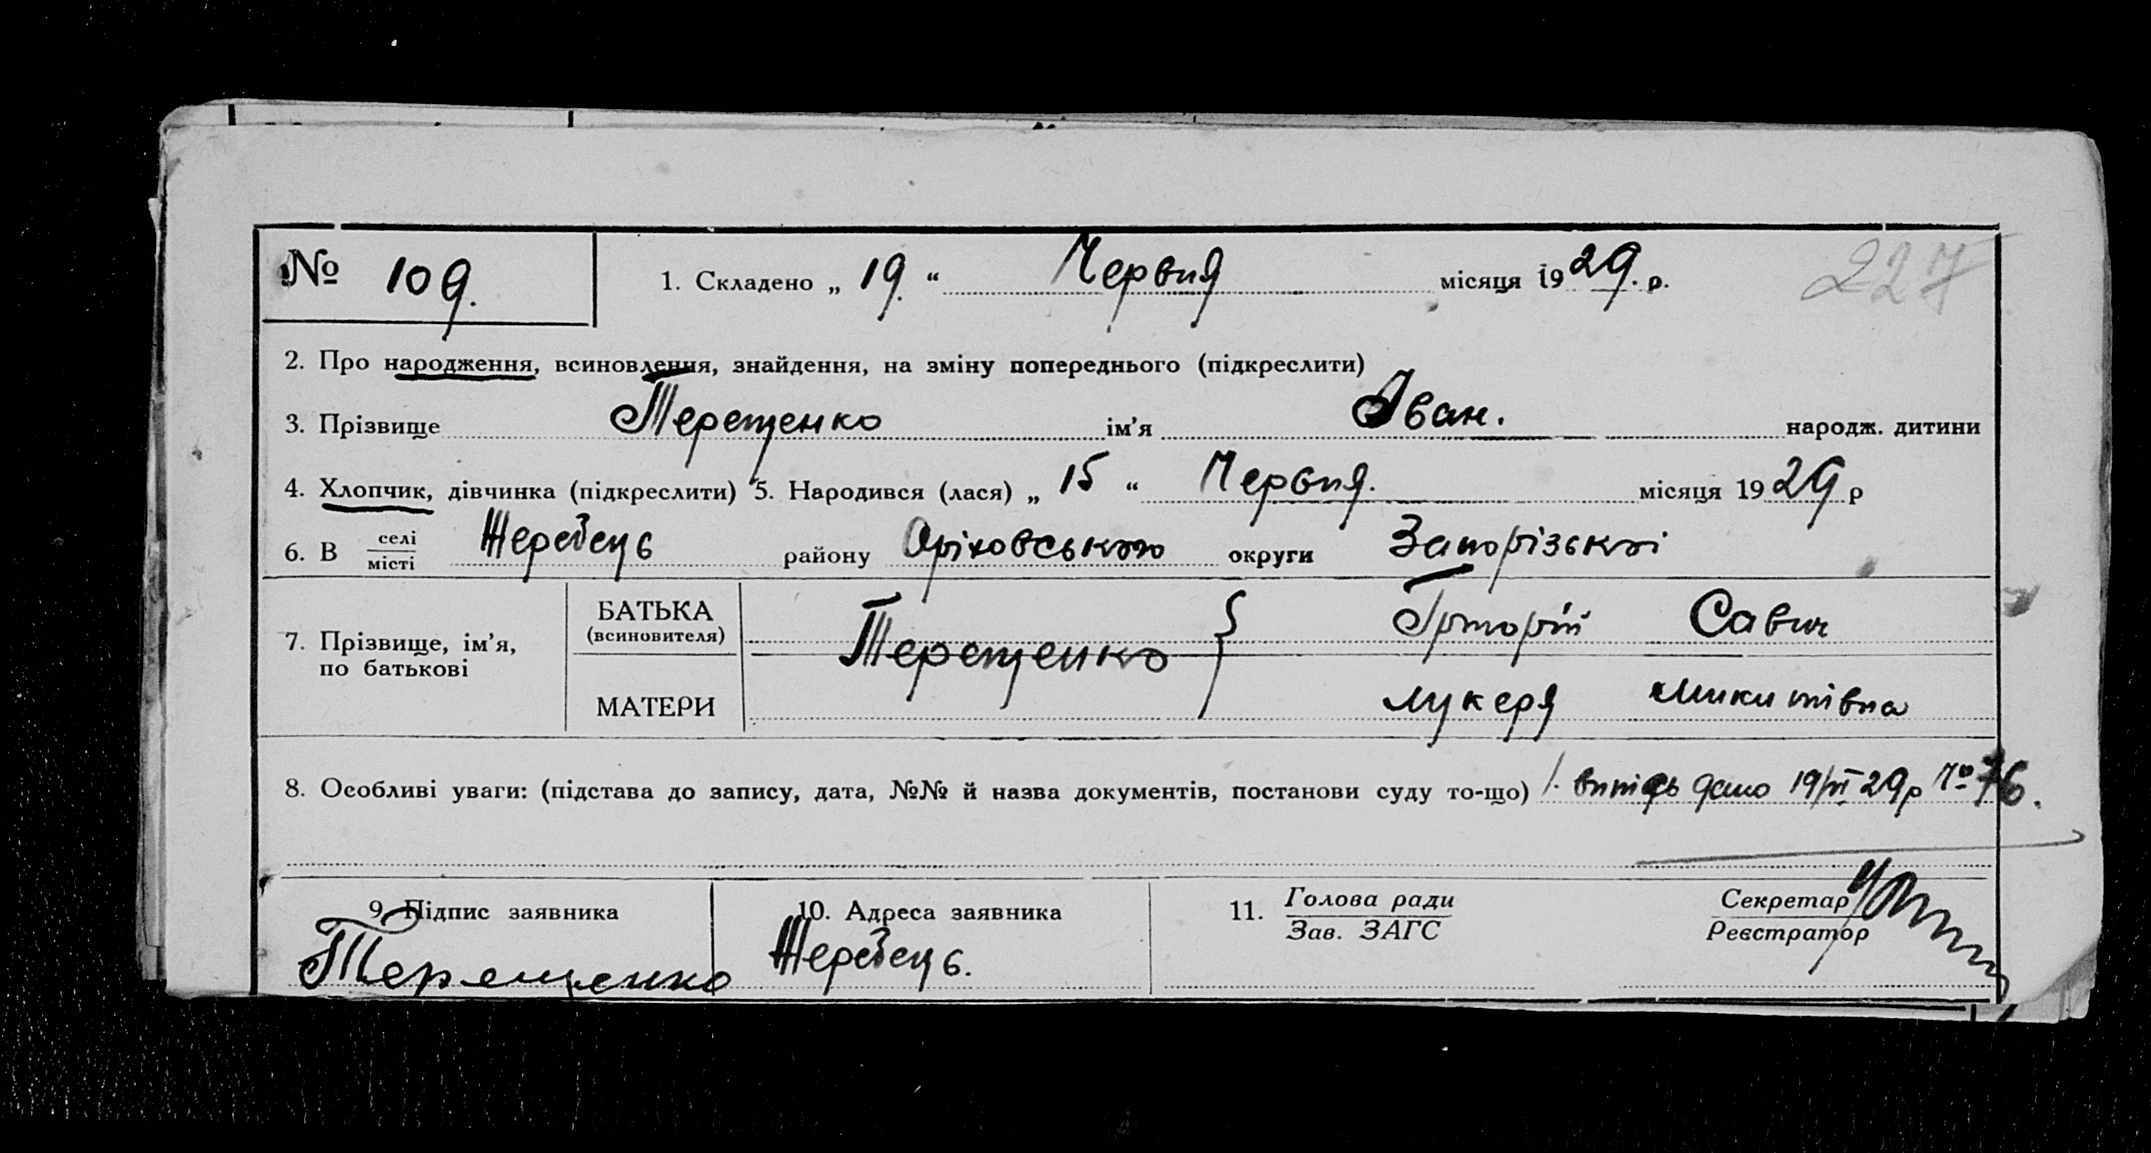 № 109. 1. Складено „ 19. “ Червня місяця 1929. р. 227
2. Про народження, всиновлення, знайдення, на зміну попереднього (підкреслити)
3. Прізвище Терещенко ім’я Іван. народж. дитини
4. Хлопчик, дівчинка (підкреслити) 5. Народився (лася) „ 15 “ Червня. місяця 1929 р
6. В селі місті Жеребець району Оріховського округи Запорізької
7. Прізвище, ім’я, по батькові
БАТЬКА (всиновителя) Терещенко } Григорій Савич
МАТЕРИ Лукеря Микитівна
8. Особливі уваги: (підстава до запису, дата, №№ й назва документів, постанови суду то-що) 1. витідь дано 19/VI 29р № 76.
9. Підпис заявника 10. Адреса заявника 11. Голова ради Зав. ЗАГС Секретар Реєстратор
Терещенко Жеребець.